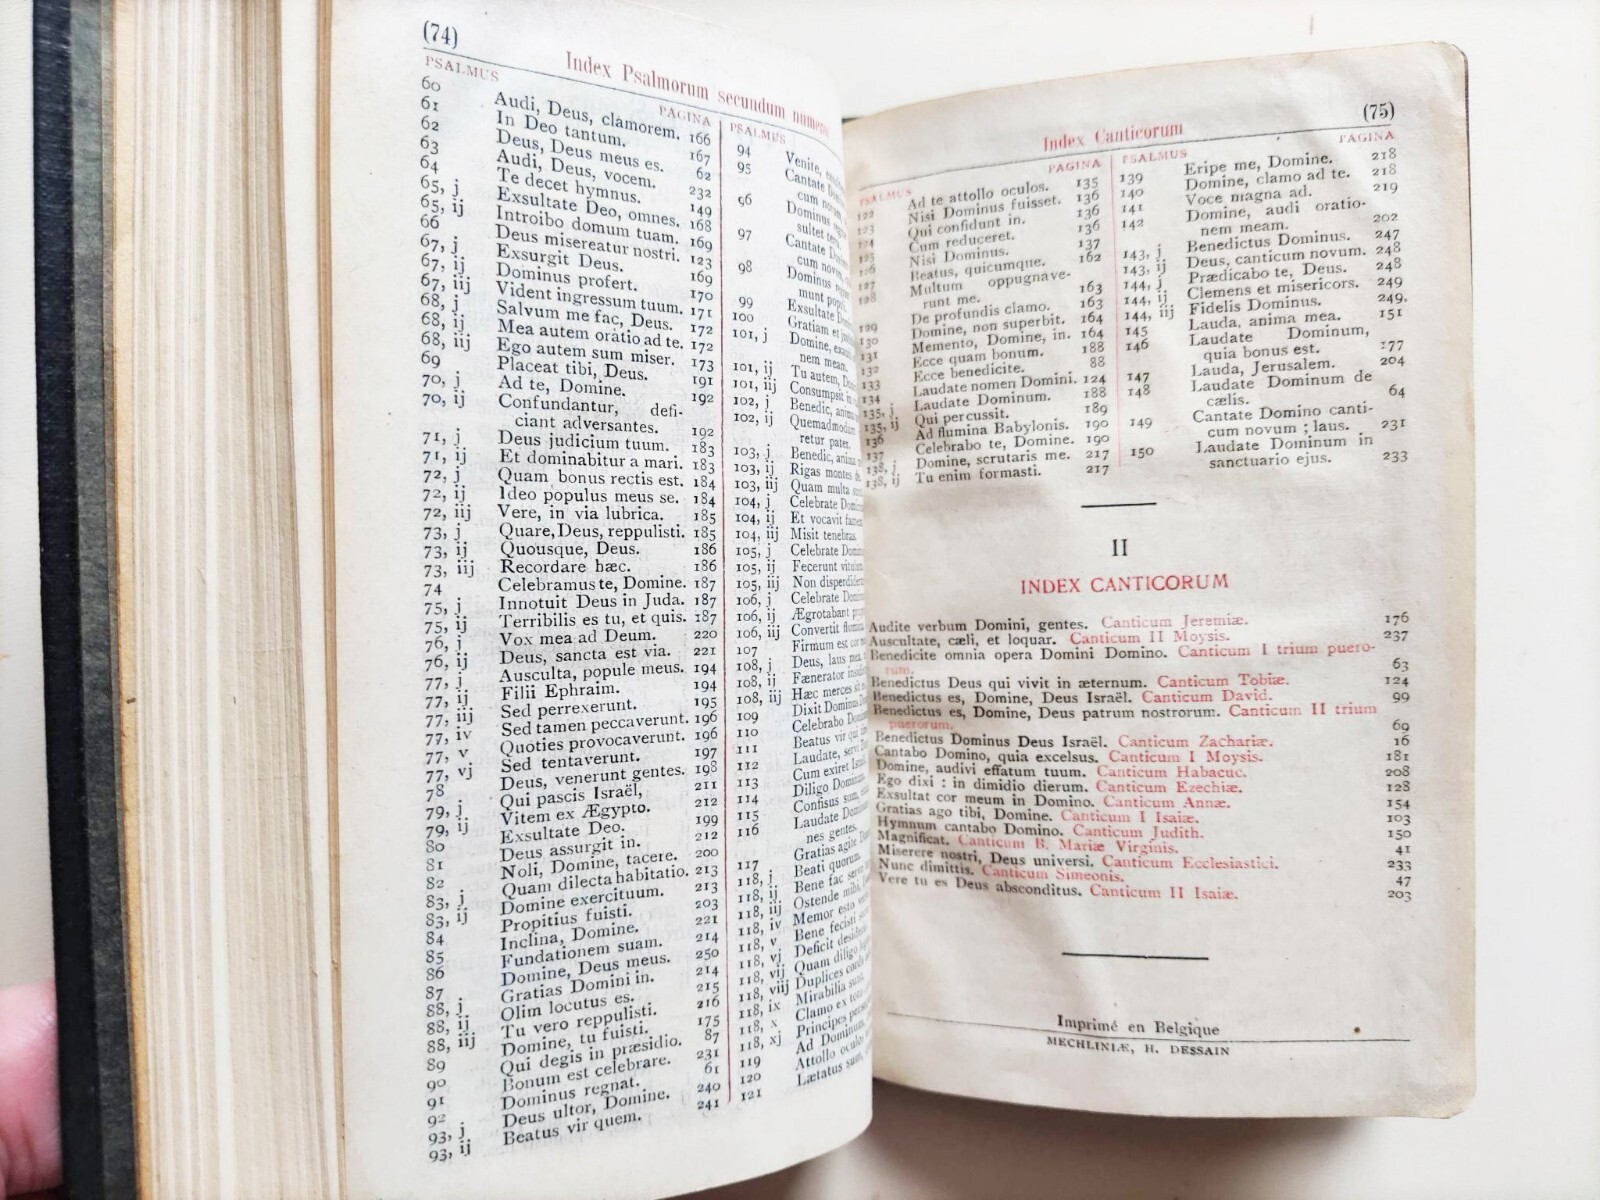 (74)
Index Psalmorum secundum numeros
PSALMUS PAGINA
60 Audi, Deus, clamorem. 166
61 In Deo tantum. 167
62 Deus, Deus meus es. 62
63 Audi, Deus, vocem. 232
64 Te decet hymnus. 149
65, j Exsultate Deo, omnes. 168
65, ij Introibo domum tuam. 169
66 Deus misereatur nostri. 123
67, j Exsurgit Deus. 169
67, ij Dominus profert. 170
67, iij Vident ingressum tuum. 171
68, j Salvum me fac, Deus. 172
68, ij Mea autem oratio ad te. 172
68, iij Ego autem sum miser. 173
69 Placeat tibi, Deus. 191
70, j Ad te, Domine. 192
70, ij Confundantur, defi-
ciant adversantes. 192
71, j Deus judicium tuum. 183
71, ij Et dominabitur a mari. 183
72, j Quam bonus rectis est. 184
72, ij Ideo populus meus se. 184
72, iij Vere, in via lubrica. 185
73, j Quare, Deus, reppulisti. 185
73, ij Quousque, Deus. 186
73, iij Recordare hæc. 186
74 Celebramus te, Domine. 187
75, j Innotuit Deus in Juda. 187
75, ij Terribilis es tu, et quis. 187
76, j Vox mea ad Deum. 220
76, ij Deus, sancta est via. 221
77, j Ausculta, popule meus. 194
77, ij Filii Ephraim. 194
77, iij Sed perrexerunt. 195
77, iv Sed tamen peccaverunt. 196
77, v Quoties provocaverunt. 196
77, vj Sed tentaverunt. 197
78 Deus, venerunt gentes. 198
79, j Qui pascis Israël, 211
79, ij Vitem ex Ægypto. 212
80 Exsultate Deo. 199
81 Deus assurgit in. 212
82 Noli, Domine, tacere. 200
83, j Quam dilecta habitatio. 213
83, ij Domine exercituum. 213
84 Propitius fuisti. 203
85 Inclina, Domine. 221
86 Fundationem suam. 214
87 Domine, Deus meus. 250
88, j Gratias Domini in. 214
88, ij Olim locutus es. 215
88, iij Tu vero reppulisti. 216
89 Domine, tu fuisti. 175
90 Qui degis in præsidio. 87
91 Bonum est celebrare. 231
92 Dominus regnat. 61
93, j Deus ultor, Domine. 240
93, ij Beatus vir quem. 241
PSALMUS
94 Venite,
95 Cantate
cum novum,
96 Dominus
sultet
97 Cantate
cum novum,
98 Dominus
99 Exsultate
100 Gratiam et
101, j Domine,
nem meam.
101, ij Tu autem,
101, iij Consumpsit
102, j Benedic,
102, ij Quemadmodum
retur pater.
103, j Benedic,
103, ij Rigas montes
103, iij Quam multa
104, j Celebrate
104, ij Et vocavit
104, iij Misit tenebras.
105, j Celebrate
105, ij Fecerunt
105, iij Non
106, j Celebrate
106, ij Ægrotabant
106, iij Convertit
107 Firmum est cor
108, j Deus, laus
108, ij Fænerator
108, iij Hæc merces
109 Dixit Dominus
110 Celebrabo
111 Beatus vir
112 Laudate,
113 Cum exiret
114 Diligo
115 Confisus sum,
116 Laudate
nes gentes.
117 Gratias agite
118, j Beati quorum.
118, ij Bene fac
118, iij Ostende mihi,
118, iv Memor esto
118, v Bene fecisti
118, vj Deficit
118, vij Quam diligo
118, viij Duplices
118, ix Mirabilia
118, x Clamo ex
118, xj Principes
119 Ad Dominum,
120 Attollo oculos
121 Lætatus sum,
(75)
Index Canticorum
PSALMUS PAGINA
122 Ad te attollo oculos. 135
123 Nisi Dominus fuisset. 136
124 Qui confidunt in. 136
125 Cum reduceret. 136
126 Nisi Dominus. 137
127 Beatus, quicumque. 162
128 Multum oppugnave-
runt me. 163
129 De profundis clamo. 163
130 Domine, non superbit. 164
131 Memento, Domine, in. 164
132 Ecce quam bonum. 188
133 Ecce benedicite. 88
134 Laudate nomen Domini. 124
135, j Laudate Dominum. 188
135, ij Qui percussit. 189
136 Ad flumina Babylonis. 190
137 Celebrabo te, Domine. 190
138, j Domine, scrutaris me. 217
138, ij Tu enim formasti. 217
PSALMUS PAGINA
139 Eripe me, Domine. 218
140 Domine, clamo ad te. 218
141 Voce magna ad. 219
142 Domine, audi oratio-
nem meam. 202
143, j Benedictus Dominus. 247
143, ij Deus, canticum novum. 248
144, j Prædicabo te, Deus. 248
144, ij Clemens et misericors. 249
144, iij Fidelis Dominus. 249.
145 Lauda, anima mea. 151
146 Laudate Dominum,
quia bonus est. 177
147 Lauda, Jerusalem. 204
148 Laudate Dominum de
cælis. 64
149 Cantate Domino canti-
cum novum ; laus. 231
150 Laudate Dominum in
sanctuario ejus. 233
II
INDEX CANTICORUM
Audite verbum Domini, gentes. Canticum Jeremiæ. 176
Auscultate, cæli, et loquar. Canticum II Moysis. 237
Benedicite omnia opera Domini Domino. Canticum I trium puero-
rum. 63
Benedictus Deus qui vivit in æternum. Canticum Tobiæ. 124
Benedictus es, Domine, Deus Israël. Canticum David. 99
Benedictus es, Domine, Deus patrum nostrorum. Canticum II trium
puerorum. 69
Benedictus Dominus Deus Israël. Canticum Zachariæ. 16
Cantabo Domino, quia excelsus. Canticum I Moysis. 181
Domine, audivi effatum tuum. Canticum Habacuc. 208
Ego dixi : in dimidio dierum. Canticum Ezechiæ. 128
Exsultat cor meum in Domino. Canticum Annæ. 154
Gratias ago tibi, Domine. Canticum I Isaiæ. 103
Hymnum cantabo Domino. Canticum Judith. 150
Magnificat. Canticum B. Mariæ Virginis. 41
Miserere nostri, Deus universi. Canticum Ecclesiastici. 233
Nunc dimittis. Canticum Simeonis. 47
Vere tu es Deus absconditus. Canticum II Isaiæ. 203
Imprimé en Belgique
MECHLINIÆ, H. DESSAIN